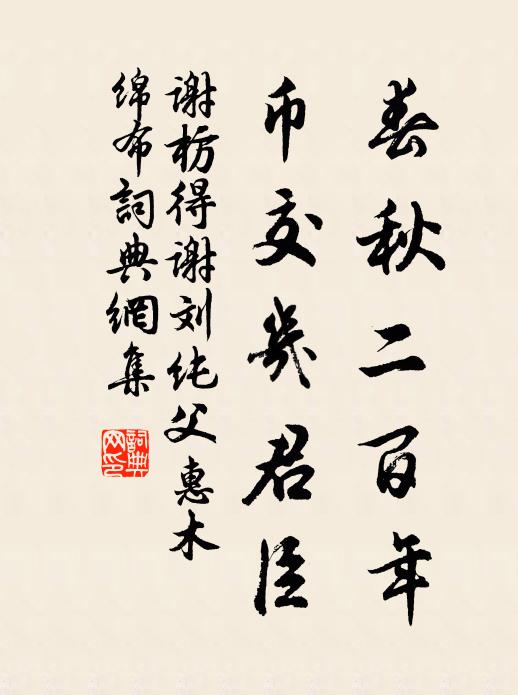 春秋二百年
币交几君臣
谢枋得谢刘纯父惠木
绵布詞典網集
詞典网印